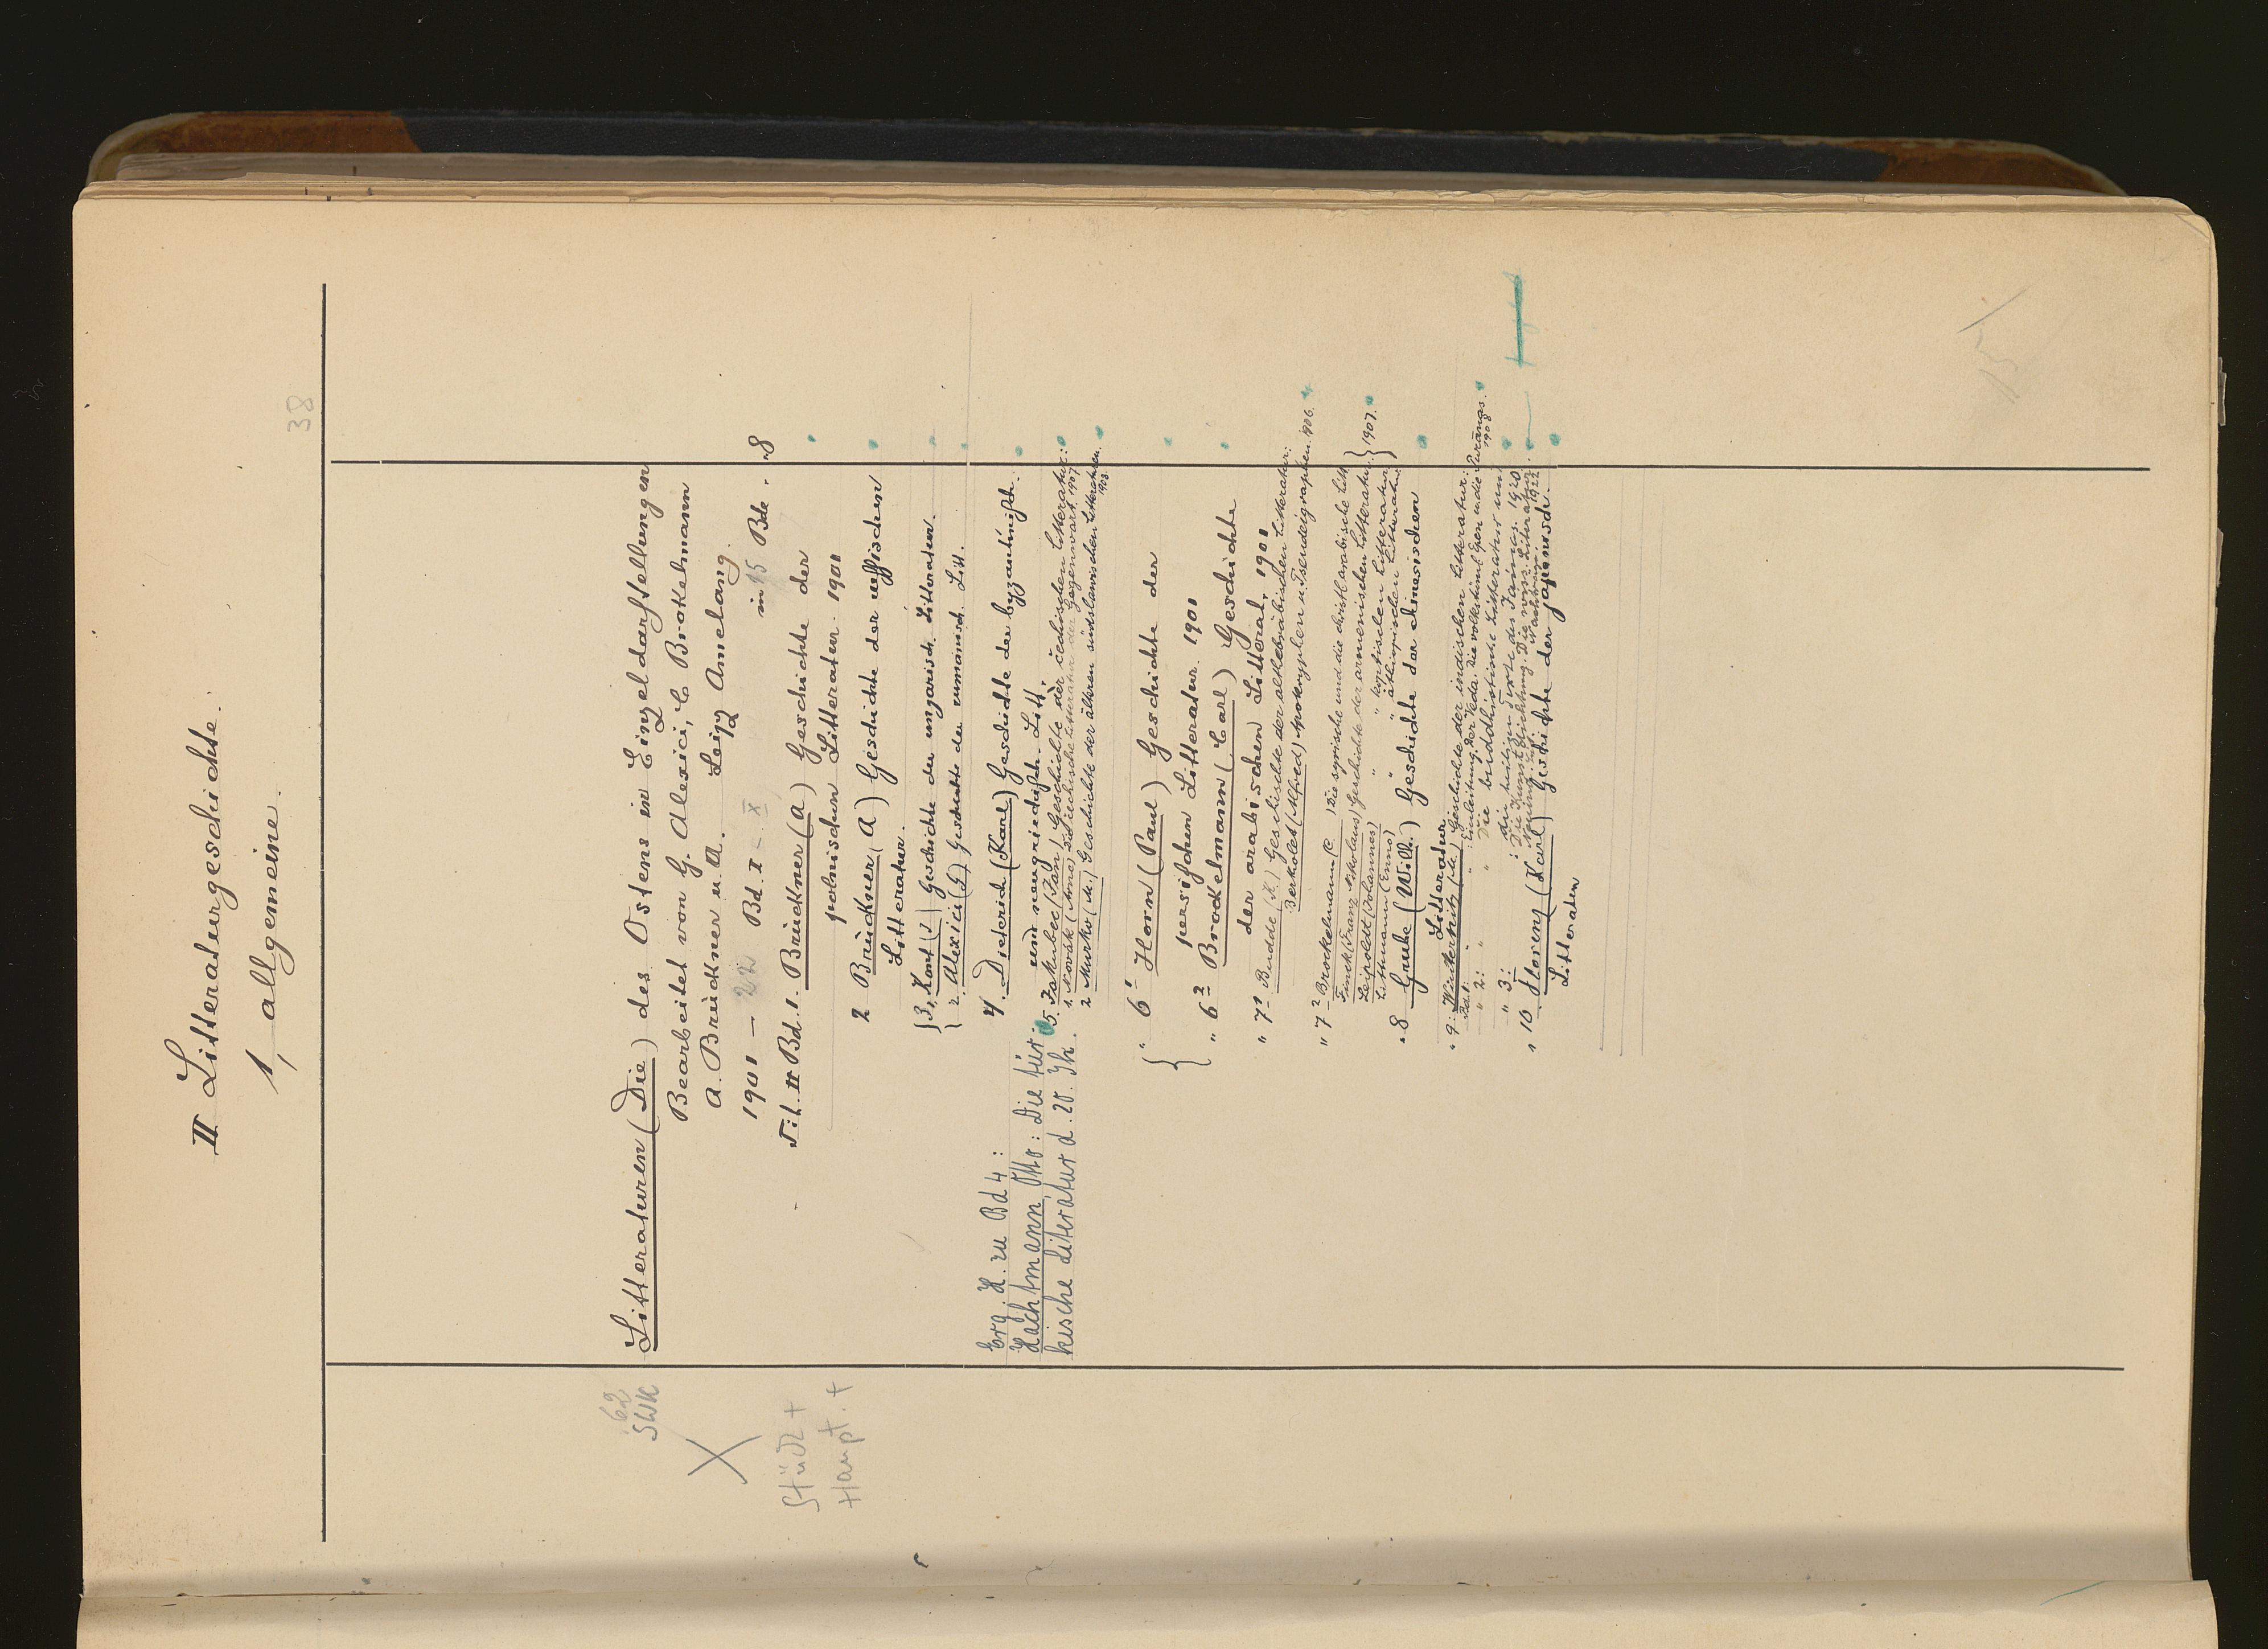 II Litteraturgeschichte.
1, allgemeine.
38
62
SWK
Litteraturen (Die) des Ostens in Einzeldarstellungen
Bearbeitet von G. Alexici, C Brokelmann
A. Brückner u. A. Leipz Amelang.
1901 – 22 Bd. I – X in 15 Bde. „8
Stüdt +
Haupt. +
Tit. II Bd. 1. Brückner (A) Geschichte der
polnischen Litteratur. 1901
2 Brückner (A) Geschichte der russischen
Litteratur.
3, Kont (I) Geschichte der ungarisch. Litteraturen.
2. Alexici (G) Geschichte der rumänisch. Litt.
4. Dieterich (Karl) Geschichte der byzantinisch.
und neugriechisch. Litt.
Erg. H. zu Bd 4:
Hachtmann, Otto: Die tür-
kische Literatur d. 20. Jh.
5. Jakubec (Jan) Geschichte der čechischen Litteratur:
1. Novák (Arne) Die čechische Litteratur der Gegenwart. 1907
2 Murko (M.) Geschichte der älteren südslawischen Litteraturen. 1908.
„ 6¹ Horn (Paul) Geschichte der
persischen Litteratur. 1901
„ 6² Brockelmann (Carl) Geschichte
der arabischen Litterat. 1901
„ 7¹ Budde (K.) Geschichte der althebräischen Litteratur.
Bertholet (Alfred) Apokryphen u. Pseudepigraphen. 1906.
„ 7² Brockelmann (C. ) Die syrische und die christl. arabische Litt.
Finck (Franz Nikolaus) Geschichte der armenischen Litteratur.
Leipoldt (Johannes) „ „ koptischen Litteratur
Littmann (Enno) „ „ äthiopischen Litteratur
1907.
„ 8 Grube (Wilh.) Geschichte der chinesischen
Litteratur.
„ 9: Winternitz (M.) Geschichte der indischen Litteratur:
Bd. 1: Einleitung. Der Veda. Die volkstüml. Epen u. die Purāṇas. 1908
„ 2: Die buddhistische Litteratur und
die heiligen Texte der Jainas. 1920
„ 3: Die Kunstdichtung. Die wiss. Literatur. 1922
„ 10 Florenz (Karl) Geschichte der japanisch.
Litteratur
15